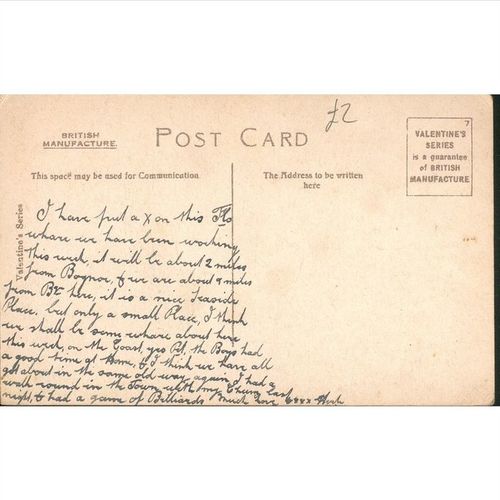 £2
BRITISH
MANUFACTURE.
POST CARD
7
VALENTINE'S
SERIES
is a guarantee
of BRITISH
MANUFACTURE
This space may be used for Communication
The Address to be written
here
Valentine's Series
I have put a x on this Flo
whare we have been working
this week, it will be about 2 miles
from Bognor, & we are about 9 miles
from here, it is a nice Seaside
Place, but only a small Place, I think
we shall be some whare about here
this week, on the Coast, yes the Boys had
a good time at Home, & I think we have all
got about in the same old way again, I had a
walk round in the Town, with my Chum, last
night, & had a game of Billiards much love xxxx